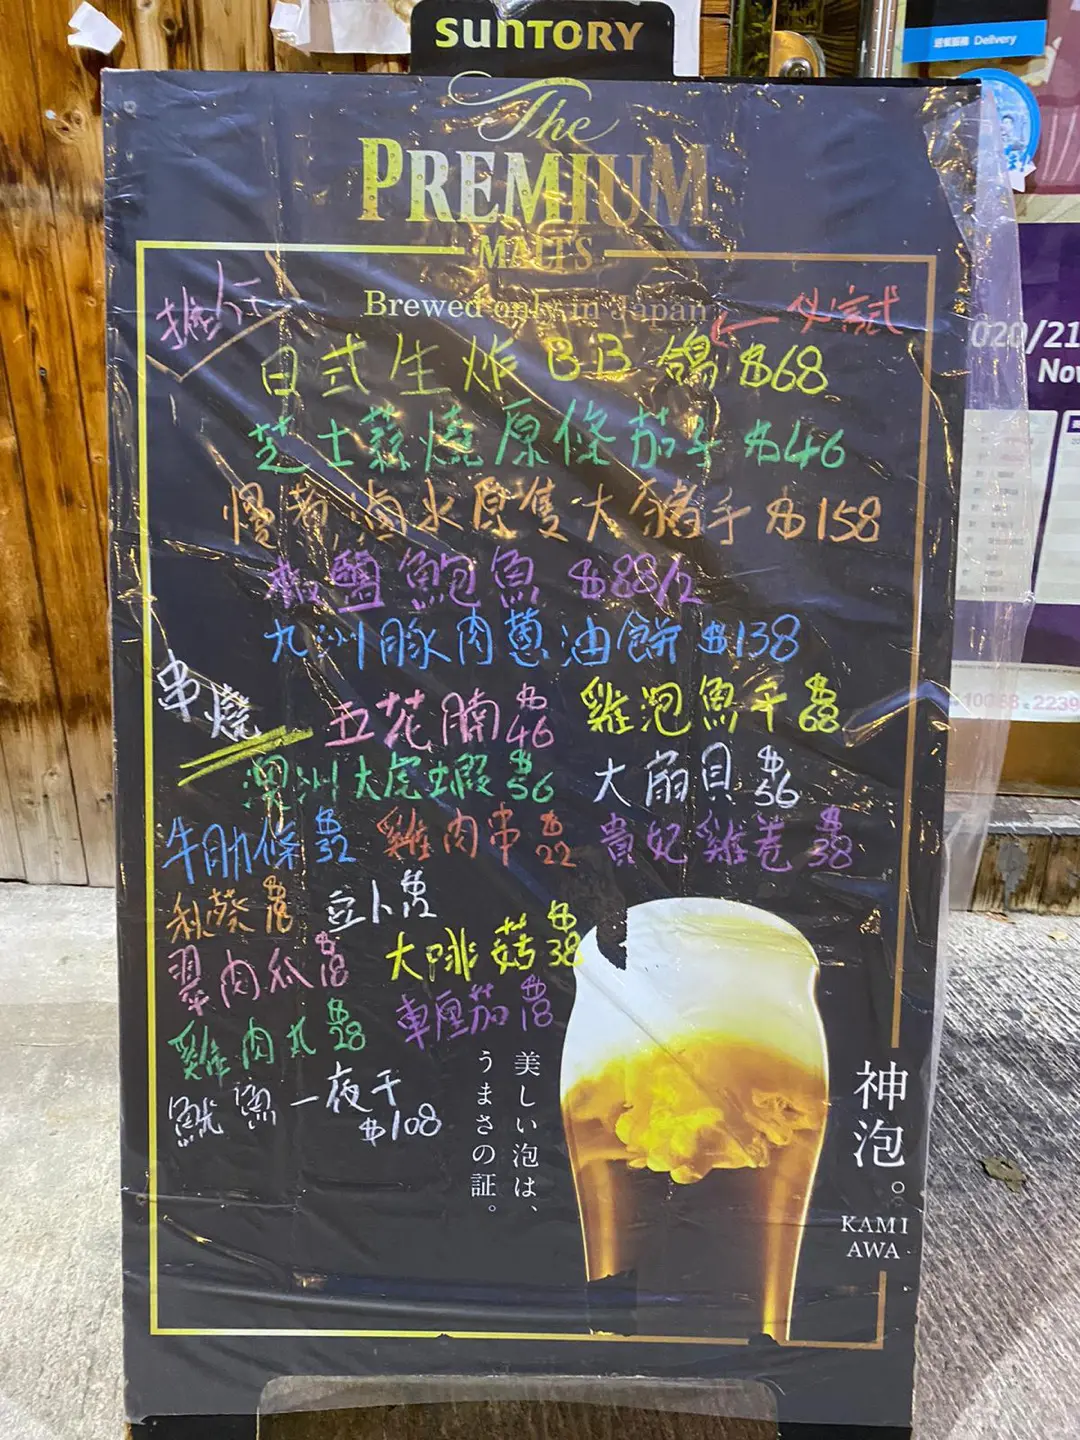 SUNTORY
送餐服務 Delivery
The
PREMIUM
MALT'S
Brewed only in Japan
推介
必試
日式生炸BB鴿 $68
芝士蒜燒原條茄子 $46
慢煮滷水原隻大豬手 $158
椒鹽鮑魚 $88/2
九州豚肉蔥油餅 $138
串燒
五花腩 $46
雞泡魚干 $68
澳洲大虎蝦 $56
大扇貝 $56
牛肋條 $32
雞肉串 $22
貴妃雞卷 $38
秋葵 $18
豆卜 $12
翠肉瓜 $18
大啡菇 $38
雞肉丸 $28
車厘茄 $18
魷魚一夜干
$108
美しい泡は、
うまさの証。
神泡。
KAMI
AWA
020/21
Nov